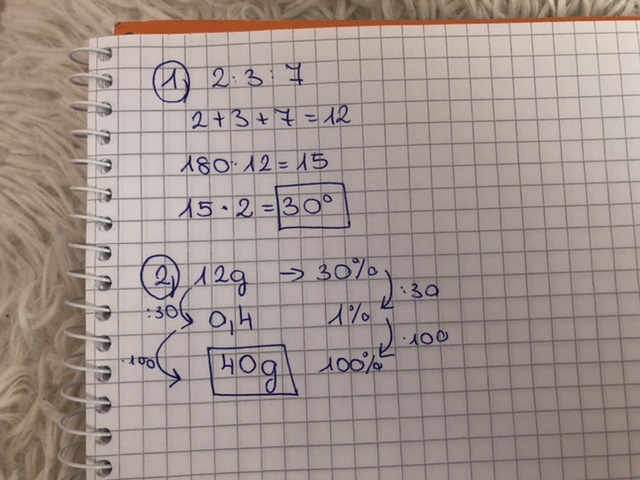 1) 2:3:7
2+3+7=12
180:12=15
15·2=30°
2) 12g → 30%
:30 0,4 1% :30
·100 40g 100% ·100